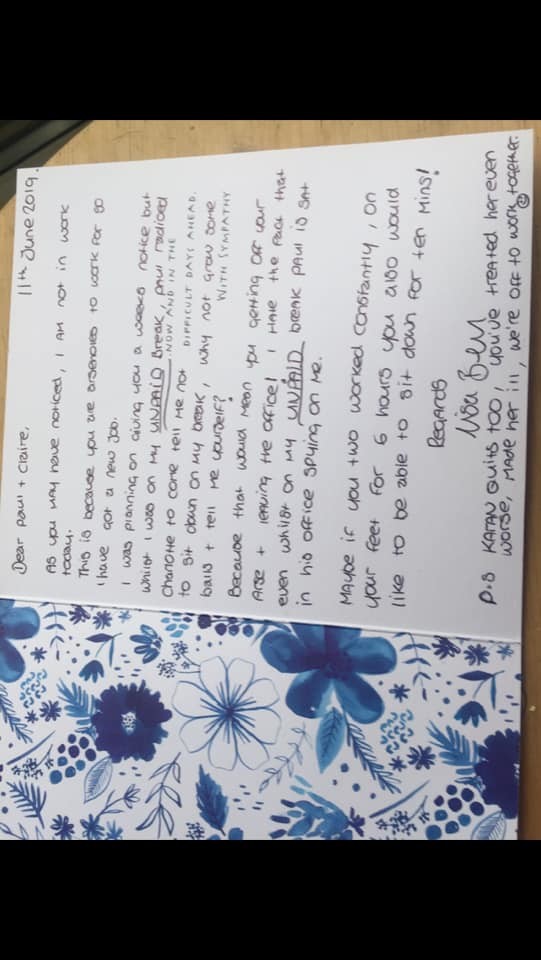 11th June 2019.
Dear Paul + Claire,
As you may have noticed, I AM not in work
today.
This is because you are arseholes to work for so
I have got a new job.
I was planning on giving you a weeks notice but
whilst I was on my UNPAID Break, Paul radioed
Charlotte to come tell me not
NOW AND IN THE
DIFFICULT DAYS AHEAD.
to sit down on my break, why not grow some
WITH SYMPATHY
balls + tell me yourself?
Because that would mean you getting off your
Arse + leaving the office! I Hate the fact that
even whilst on my UNPAID break Paul is sat
in his office spying on me.
Maybe if you two worked constantly, on
your feet for 6 hours you also would
like to be able to sit down for ten mins!
Regards
Lisa
P.S KATAN QUITS TOO, you've treated her even
worse, made her ill, we're off to work together.